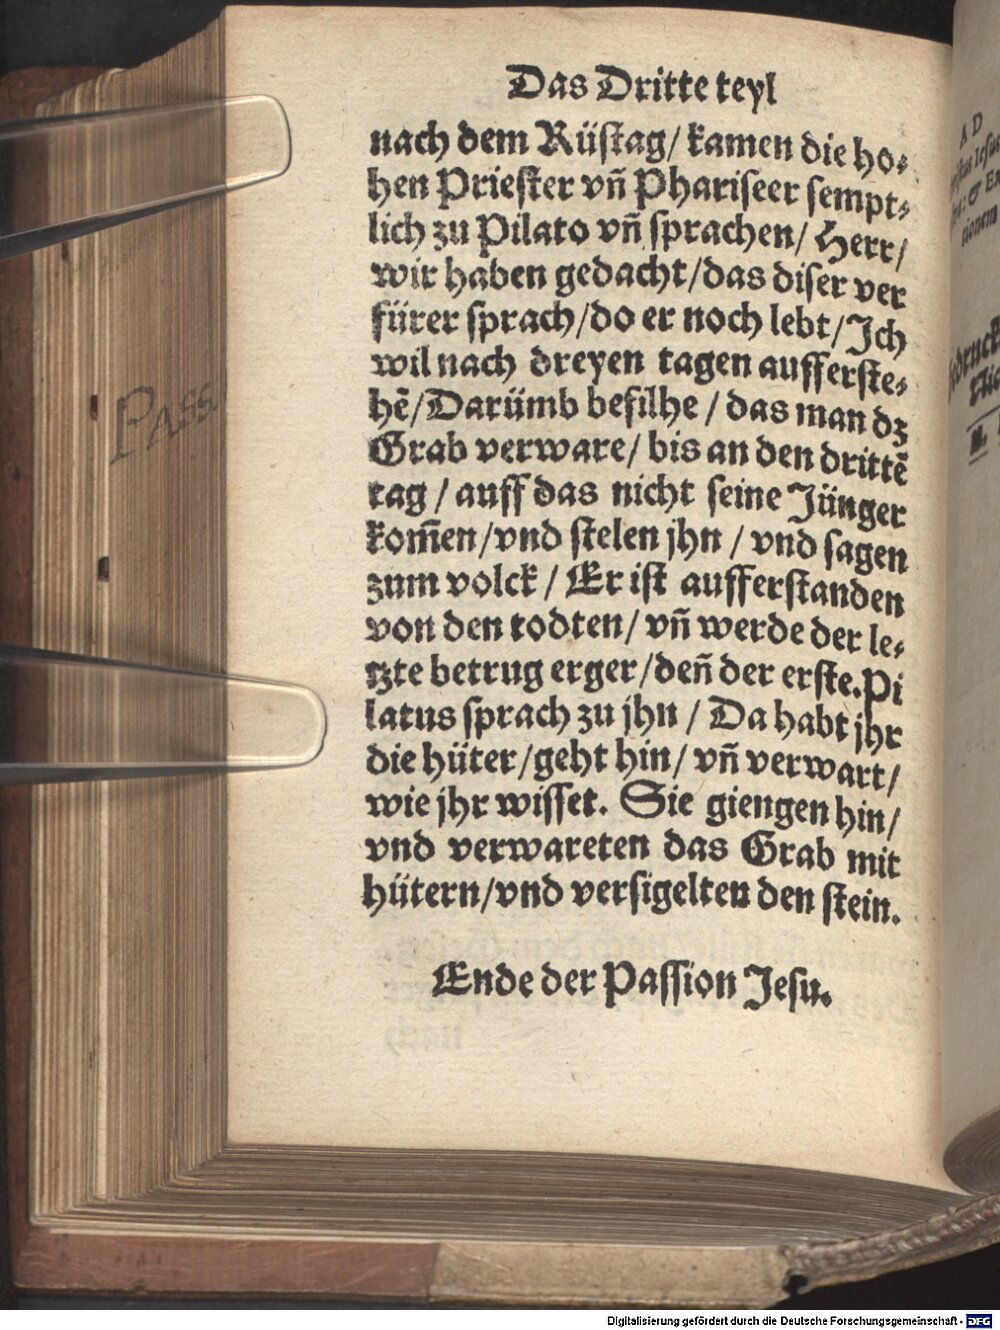 Das Dritte teyl
nach dem Rüstag/ kamen die ho-
hen Priester vñ Phariseer sempt-
lich zu Pilato vñ sprachen/ Herr/
wir haben gedacht/das diser ver
fürer sprach/do er noch lebt/Ich
wil nach dreyen tagen aufferste-
hē/Darümb befilhe / das man dz
Grab verware/ bis an den drittē
tag / auff das nicht seine Jünger
kom̃en/vnd stelen jhn / vnd sagen
zum volck / Er ist aufferstanden
von den todten/ vñ werde der le-
tzte betrug erger/deñ der erste.Pi
latus sprach zu jhn / Da habt jhr
die hüter/geht hin/ vñ verwart/
wie jhr wisset. Sie giengen hin/
vnd verwareten das Grab mit
hütern/vnd versigelten den stein.
Ende der Passion Jesu.
Pass.
A D
Digitalisierung gefördert durch die Deutsche Forschungsgemeinschaft - DFG